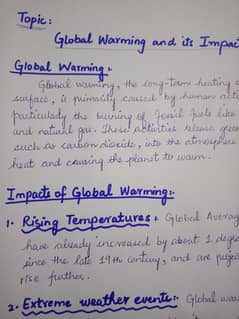 Topic:
Global Warming and its Impac
Global Warming:-
Global warming, the long-term heating
surface, is primarily caused by human acti
particularly the burning of fossil fuels like
and natural gas. These activities release green
such as carbon dioxide, into the atmosphere
heat and causing the planet to warm.
Impacts of Global Warming:-
1. Rising Temperatures: Global Averag
have already increased by about 1 degre
since the late 19th century, and are projec
rise further.
2. Extreme weather events:- Global war